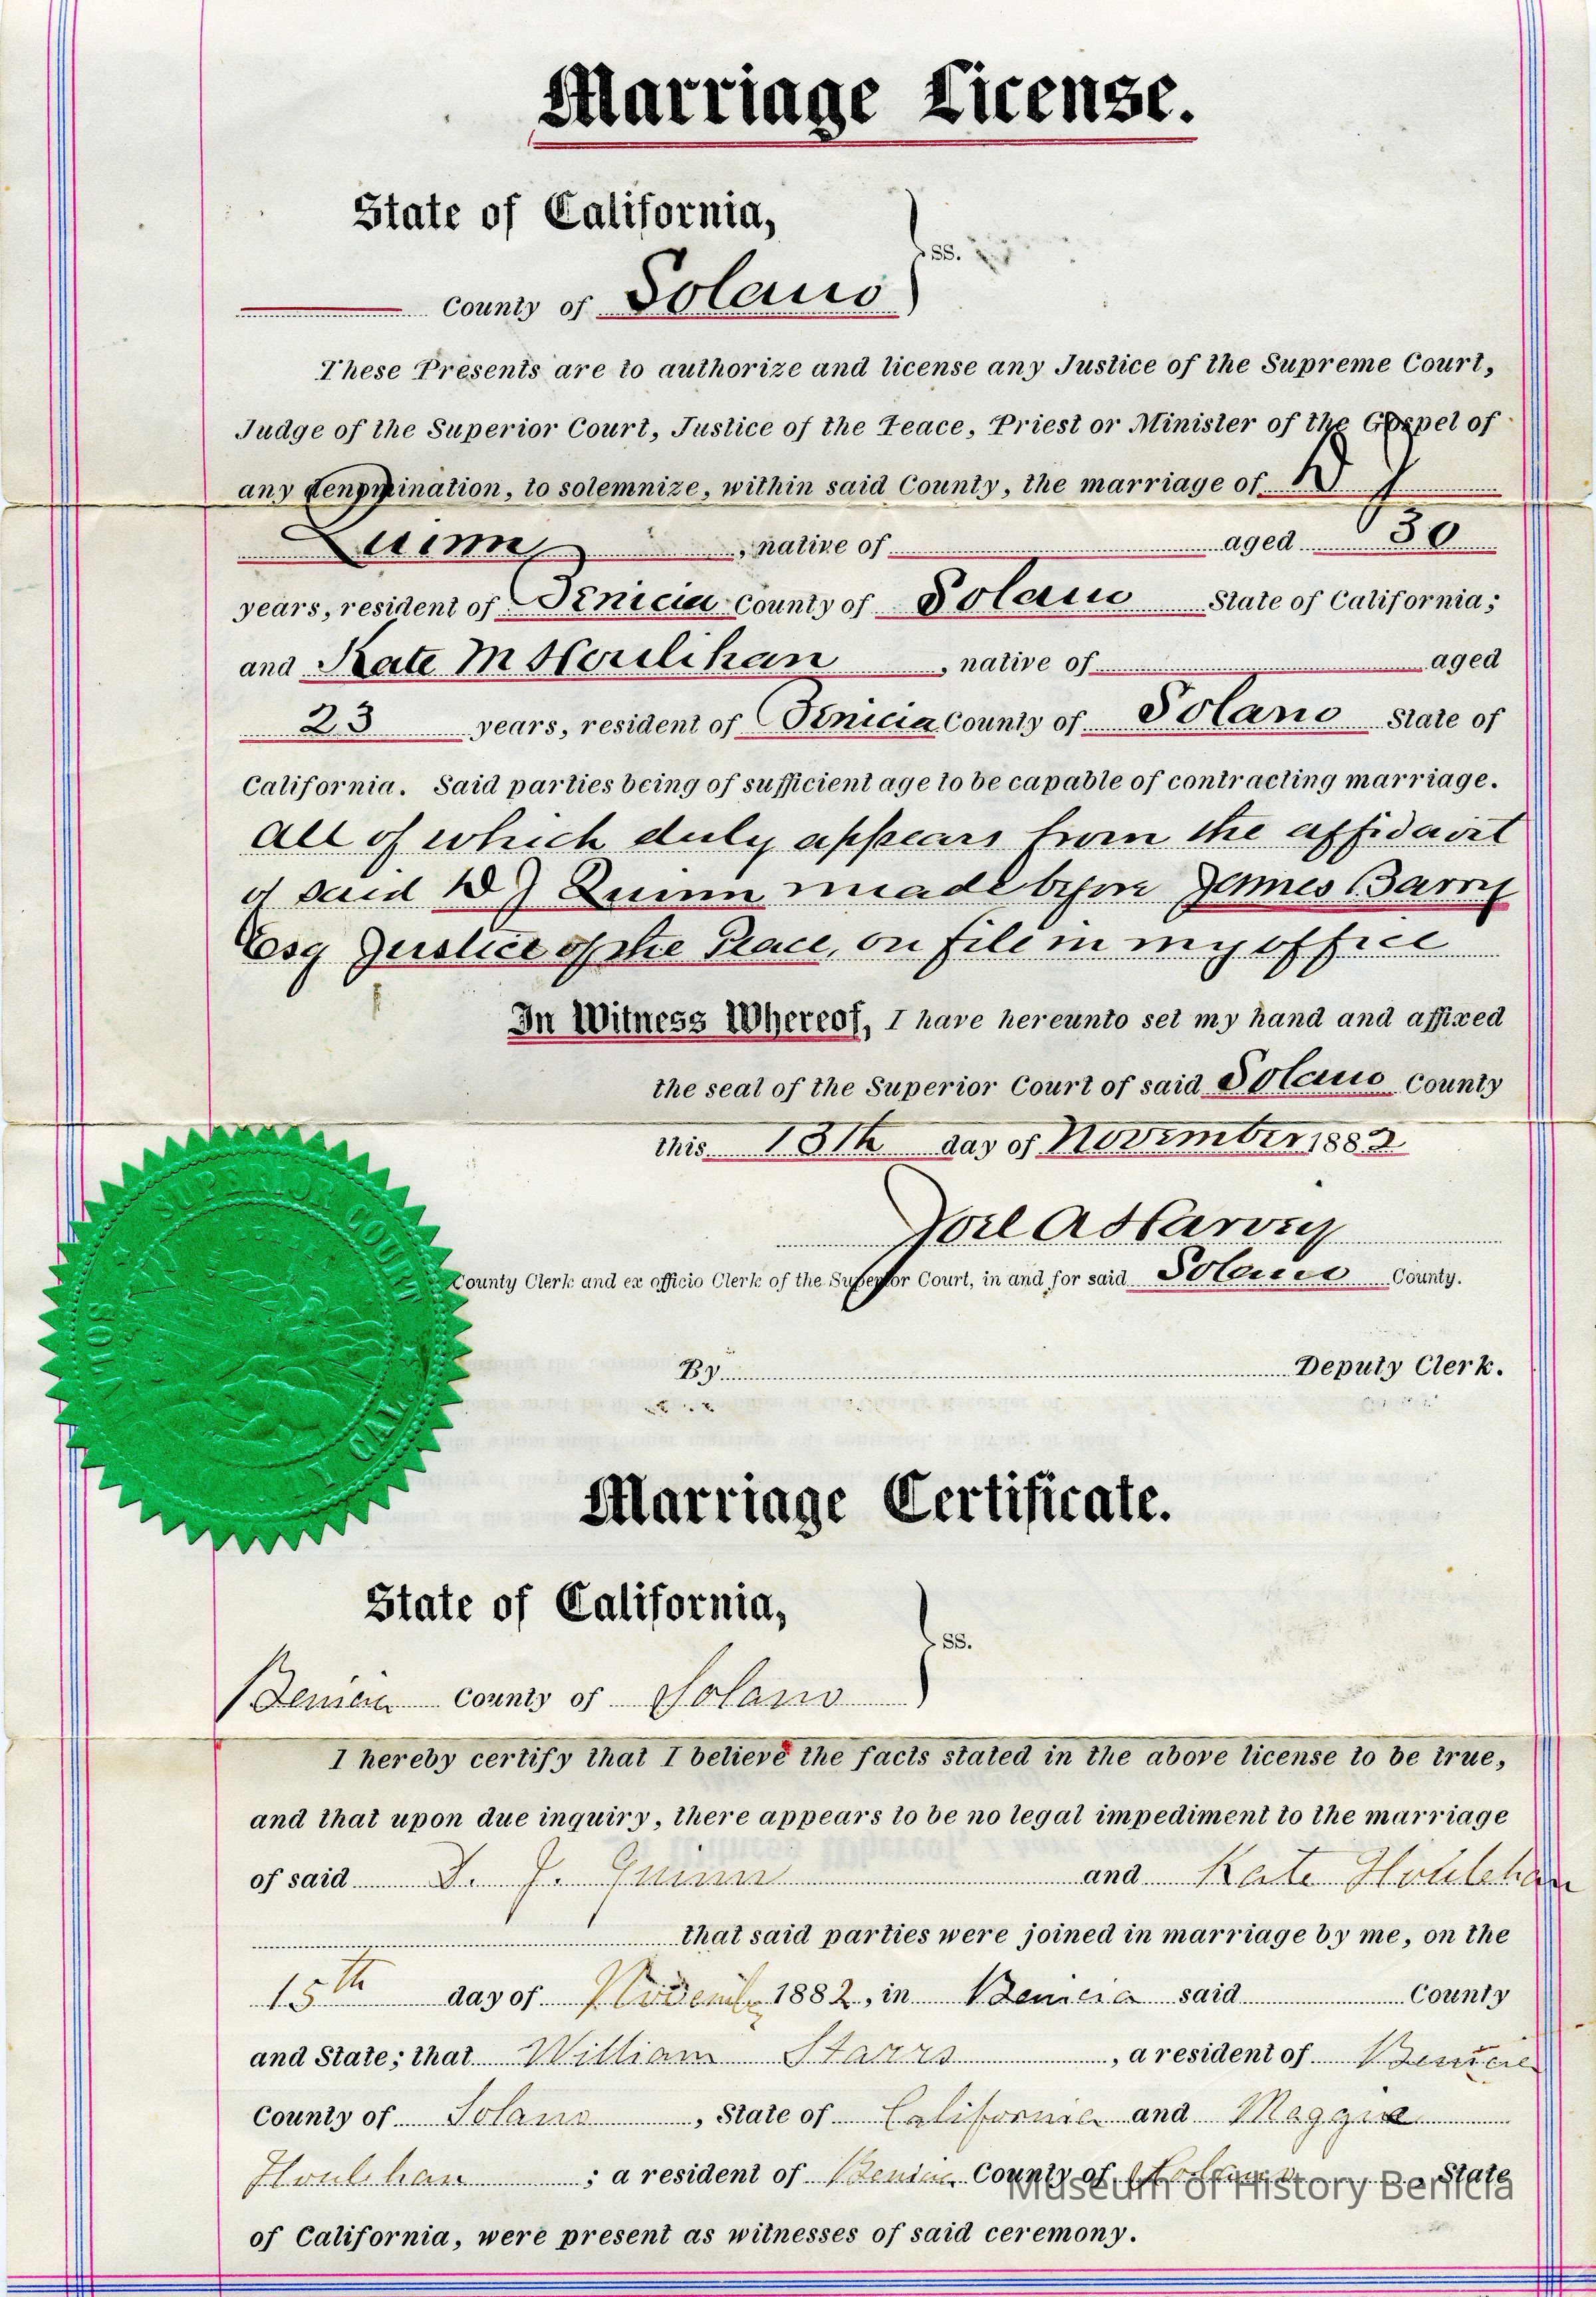 Marriage License.
State of California,
ss.
County of Solano
These Presents are to authorize and license any Justice of the Supreme Court,
Judge of the Superior Court, Justice of the Peace, Priest or Minister of the Gospel of
any denomination, to solemnize, within said County, the marriage of D J
Quinn, native of aged 30
years, resident of Benicia County of Solano State of California;
and Kate M Houlihan, native of aged
23 years, resident of Benicia County of Solano State of
California. Said parties being of sufficient age to be capable of contracting marriage.
all of which duly appears from the affidavit
of said D J Quinn made before James Barry
Esq Justice of the Peace, on file in my office
In Witness Whereof, I have hereunto set my hand and affixed
the seal of the Superior Court of said Solano County
this 13th day of November 1882
Joel A Harvey
County Clerk and ex officio Clerk of the Superior Court, in and for said Solano County.
By Deputy Clerk.
SUPERIOR COURT
CAL.
Marriage Certificate.
State of California,
ss.
Benicia County of Solano
I hereby certify that I believe the facts stated in the above license to be true,
and that upon due inquiry, there appears to be no legal impediment to the marriage
of said D. J. Quinn and Kate Houlehan
that said parties were joined in marriage by me, on the
15th day of November 1882, in Benicia said County
and State; that William Starrs, a resident of Benicia
County of Solano, State of California and Maggie
Houlihan; a resident of Benicia County of Solano, State
of California, were present as witnesses of said ceremony.
Museum of History Benicia